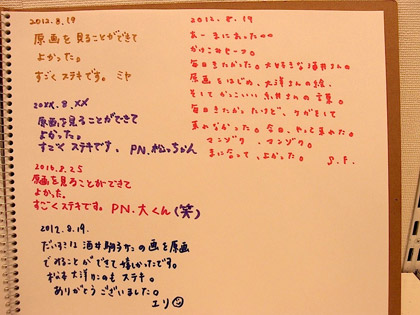 2012.8.19
原画を見ることができて
よかった。
すごくステキです。 ミヤ
20XX.8.XX
原画を見ることができて
よかった。
すごく ステキ です。 PN.松っちゃん
2016.8.25
原画を見ることができて
よかった。
すごくステキです。PN.大くん(笑)
2012.8.19.
だいすきな 酒井駒子さんの画を原画
でみることができて嬉しかったです。
松本大洋さんのも ステキ。
ありがとうございました。
エリ
2012.8.19
あー まにあったー
かけこみセーフ。
毎日きたかった。大好きな酒井さんの
原画をはじめ、大洋さんの絵、
そしてかっこいい さんの言葉。
毎日きたかったけど、ケガをして
来れなかった。今日、やっと来れた。
マンゾク、マンゾク。
まに合って、よかった。 S.F.